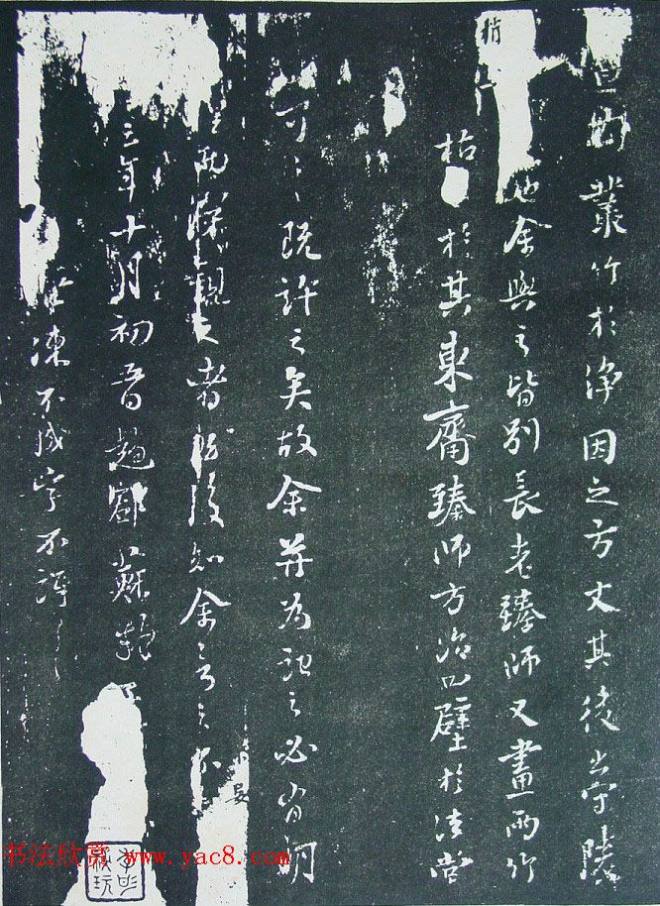 叢竹於淨因之方丈其後出守陵
也余與之皆別長老臻師又畫兩竹
梢
枯於其東齋臻師方治四壁於法堂
可〻既許之矣故余并為記之必有明
而深觀之者然後知余言之不
妄
三年十月初五日趙郡蘇軾
凍不成字不訝
书法欣赏 www.yac8.com